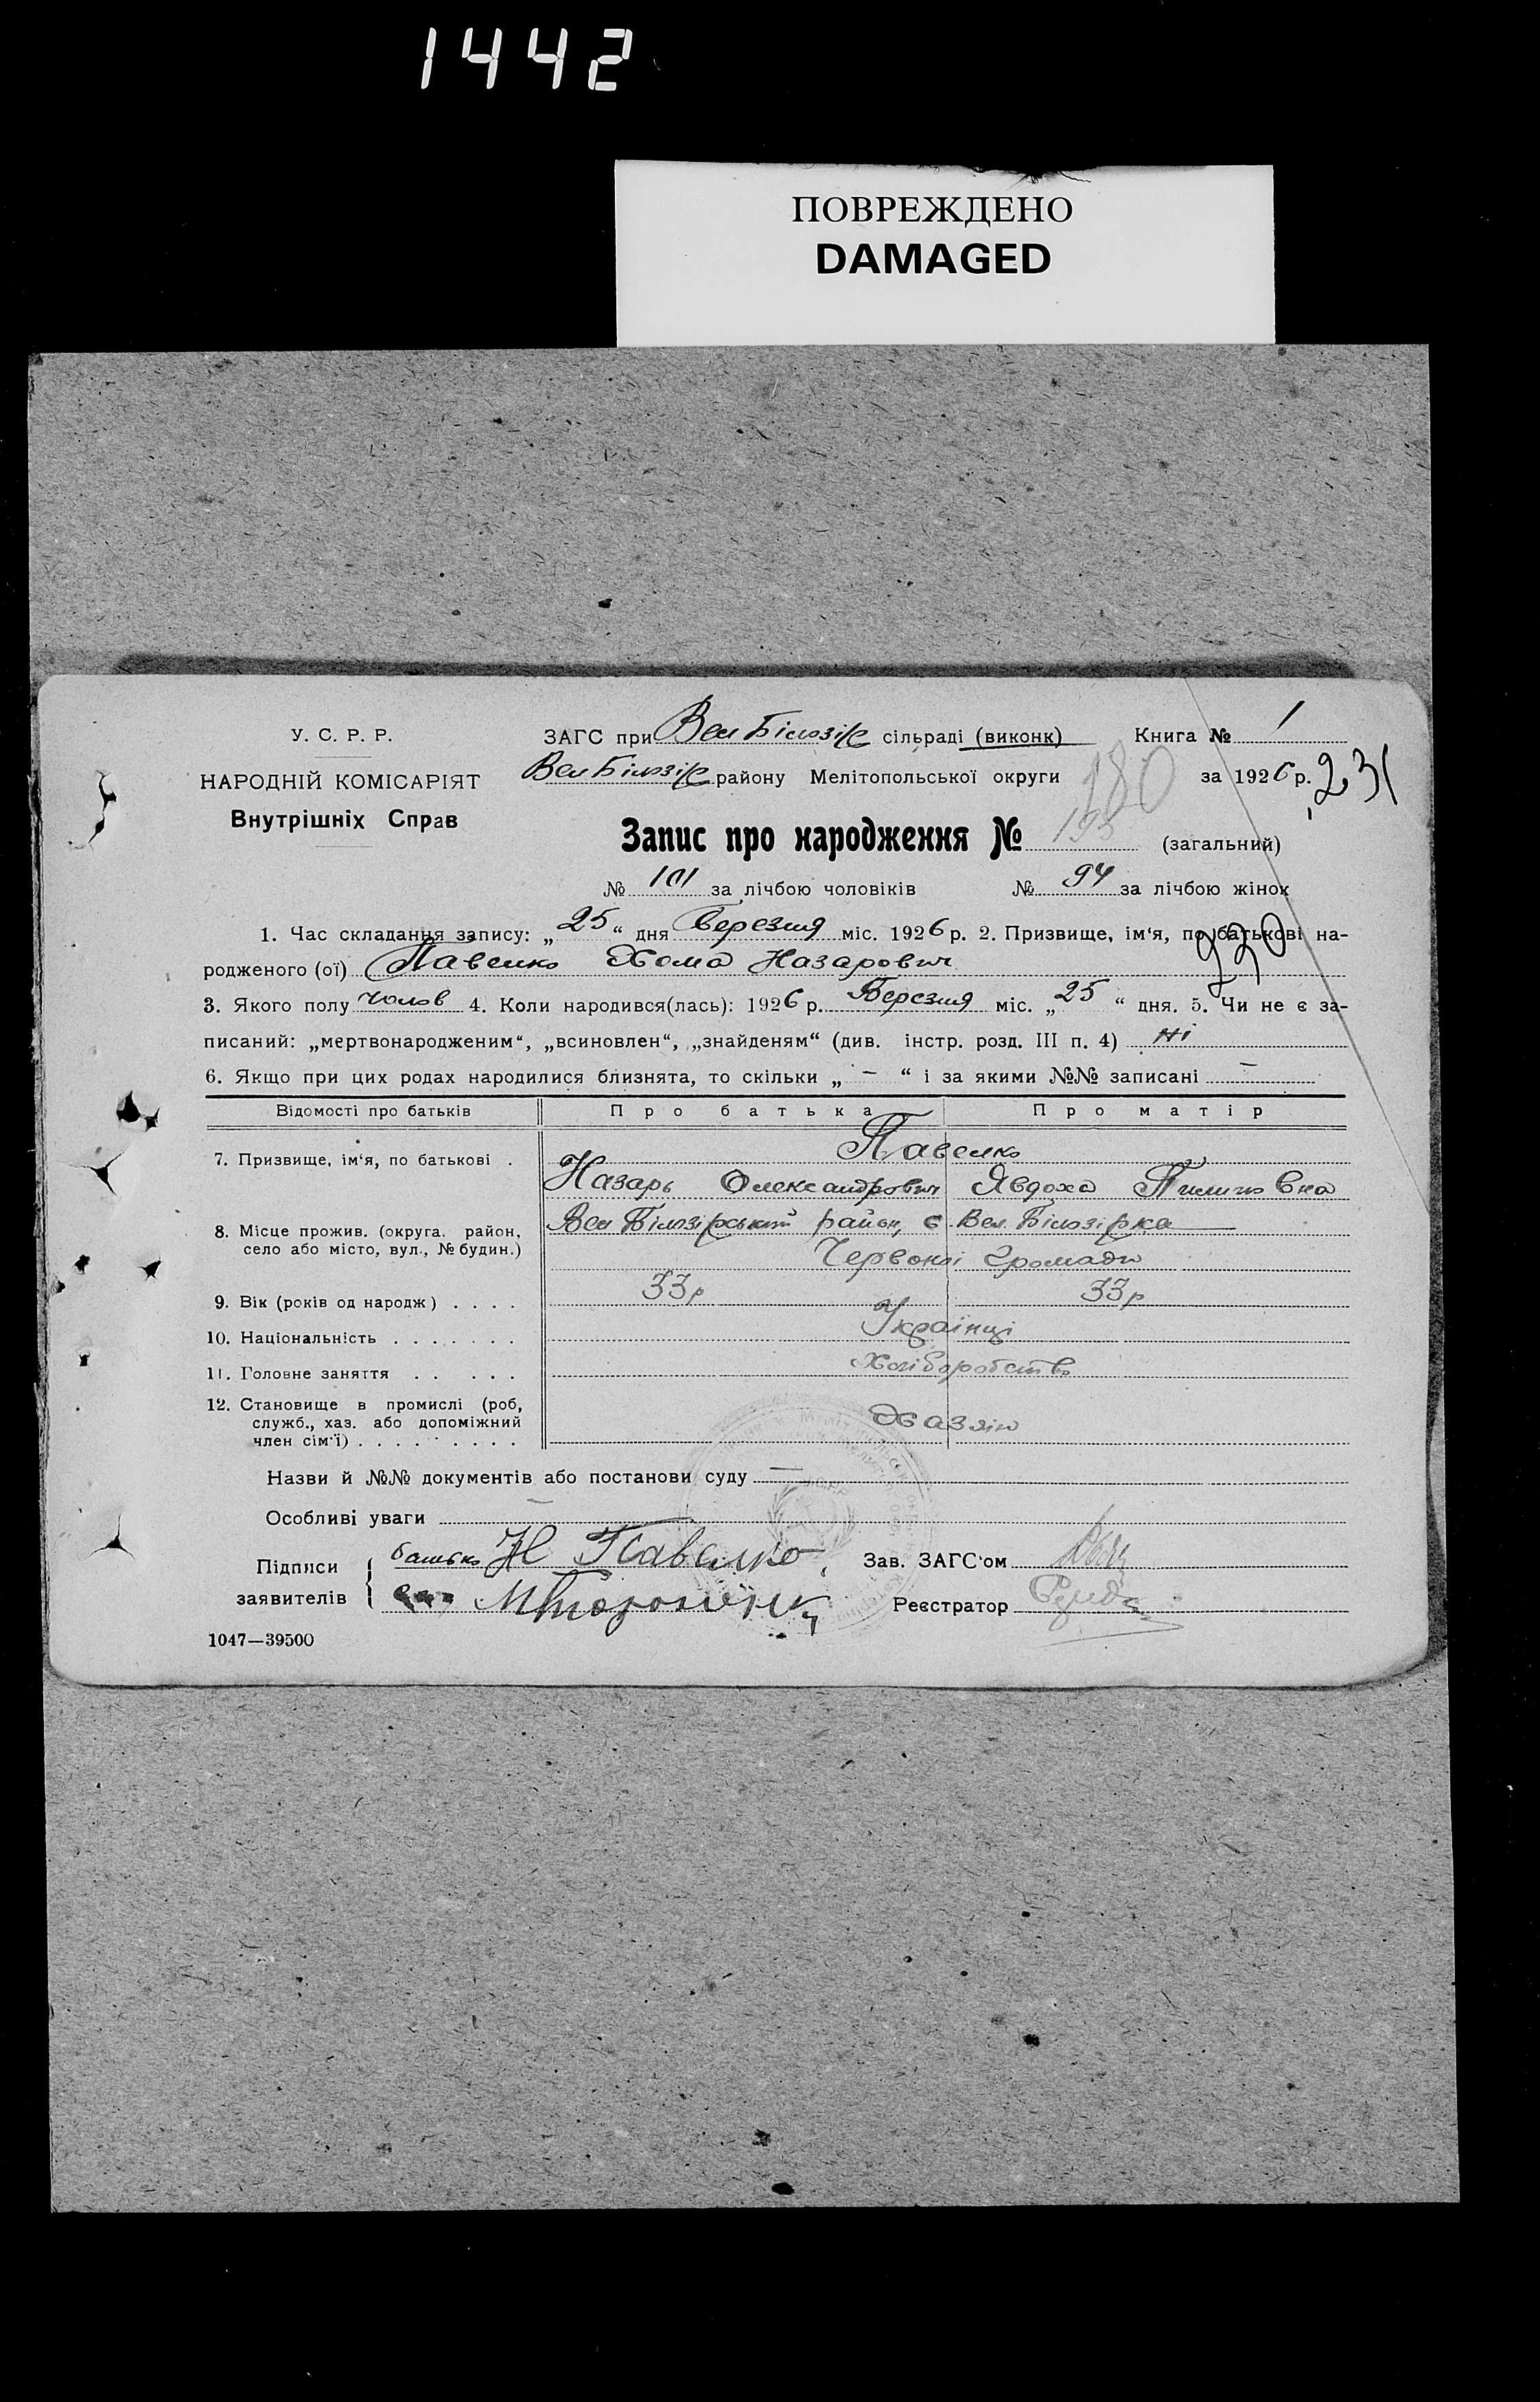 1442
ПОВРЕЖДЕНО
DAMAGED
У. С. Р. Р.
НАРОДНІЙ КОМІСАРІЯТ
Внутрішніх Справ
ЗАГС при Вел Білозір сільраді (виконк) Книга № 1
Вел Білозір району Мелітопольської округи за 1926 р. 231
180
Запис про народження № 195 (загальний)
№ 101 за лічбою чоловіків № 94 за лічбою жінок
1. Час складання запису: „25“ дня Березня міс. 1926 р. 2. Призвище, ім‘я, по батькові на-
родженого (ої) Павелко Хома Назарович
3. Якого полу чолов 4. Коли народився(лась): 1926 р. Березня міс. „25“ дня. 5. Чи не є за-
писаний: „мертвонародженим“, „всиновлен“, „знайденям“ (див. інстр. розд. III п. 4) ні
6. Якщо при цих родах народилися близнята, то скільки „ – “ і за якими №№ записані –
Відомості про батьків Про батька Про матір
7. Призвище, ім‘я, по батькові . Павелко
Назарь Олександрович Явдоха Пилиповна
8. Місце прожив. (округа. район, село або місто, вул., № будин.) Вел Білозірський район, с. Вел. Білозірка
Червоної Громади
9. Вік (років од народж) . . . . 33р 33р
10. Національність . . . . . . . Українці
11. Головне заняття . . . . . Хліборобство
12. Становище в промислі (роб, служб., хаз. або допоміжний член сім‘ї) . . . . . . . . . Хазяін
Назви й №№ документів або постанови суду —
Особливі уваги —
Підписи заявителів батько Н Павелко Зав. ЗАГС‘ом
Реєстратор
1047—39500